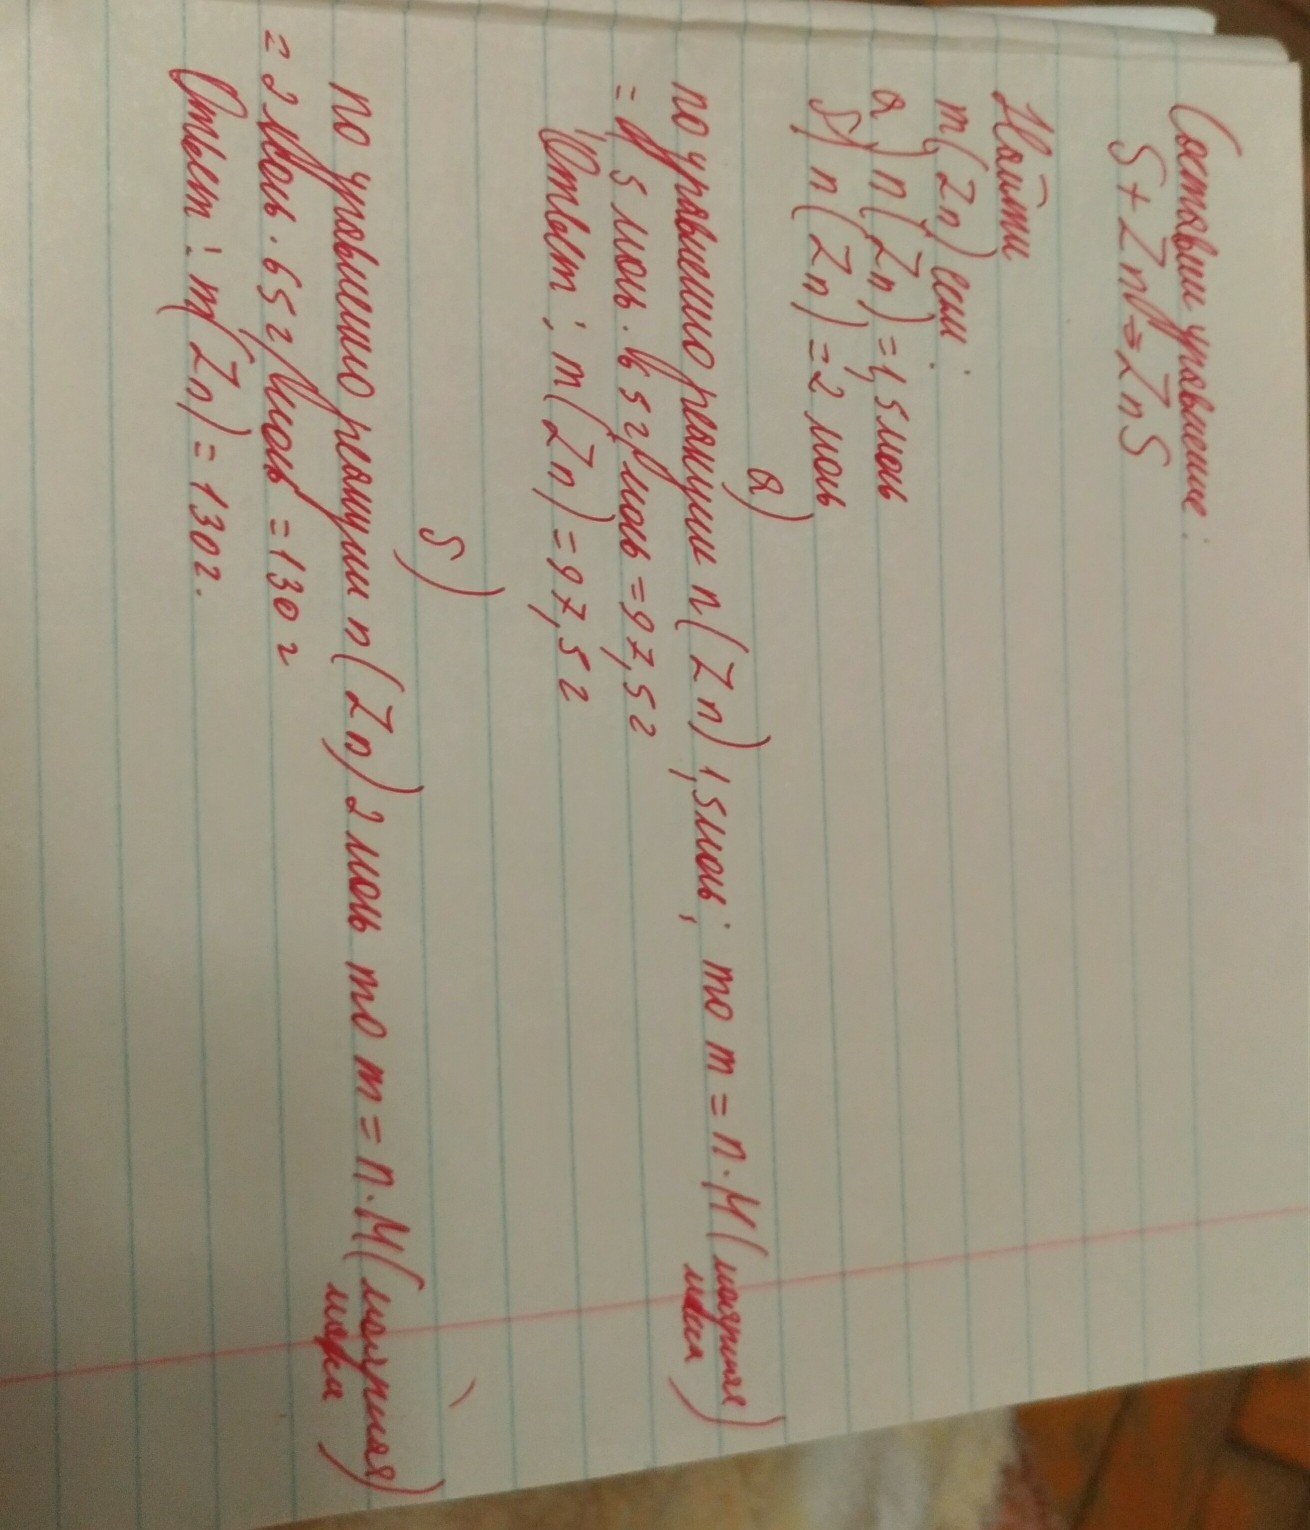 Составим уравнение:
S + Zn = ZnS
Найти
m(Zn) если:
а) n(Zn) = 1,5 моль
б) n(Zn) = 2 моль
а)
по уравнению реакции n(Zn) 1,5 моль, то m = n · M (молярная
масса)
= 1,5 моль · 65 г/моль = 97,5 г
Ответ: m(Zn) = 97,5 г
б)
по уравнению реакции n(Zn) 2 моль то m = n · M (молярная
масса)
= 2 моль · 65 г/моль = 130 г
Ответ: m(Zn) = 130 г.